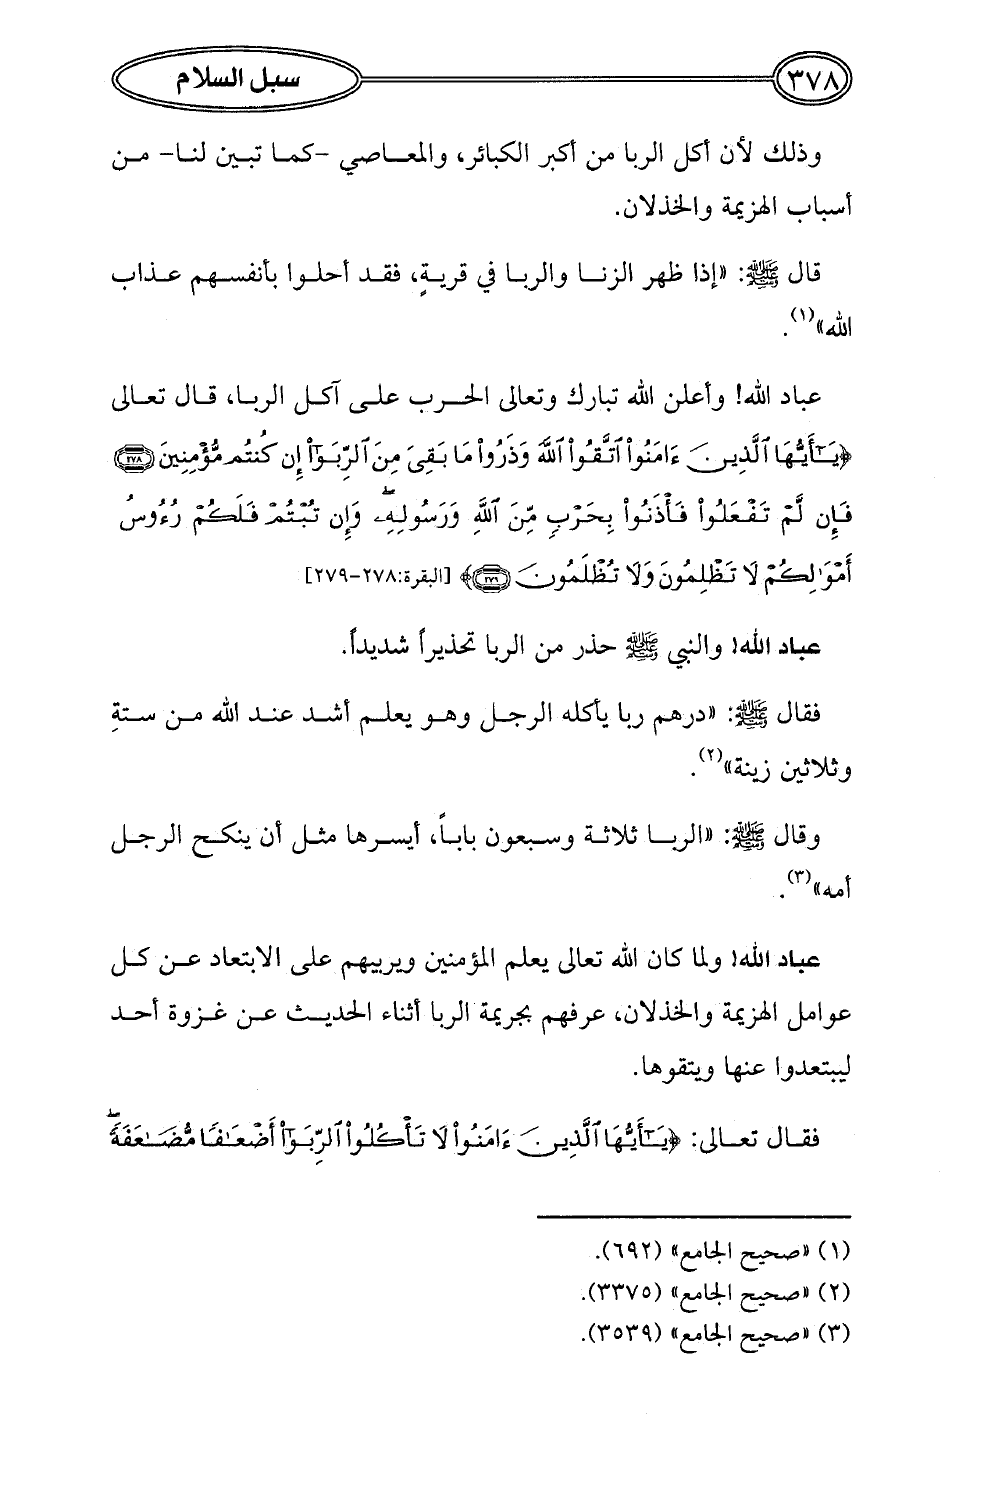 ٣٧٨ سبل السلام
وذلك لأن أكل الربا من أكبر الكبائر، والمعاصي -كما تبين لنا- من
أسباب الهزيمة والخذلان.
قال ﷺ: «إذا ظهر الزنا والربا في قريةٍ، فقد أحلوا بأنفسهم عذاب
الله»(١).
عباد الله! وأعلن الله تبارك وتعالى الحرب على آكل الربا، قال تعالى
﴿يَـٰٓأَيُّهَا ٱلَّذِينَ ءَامَنُوا۟ ٱتَّقُوا۟ ٱللَّهَ وَذَرُوا۟ مَا بَقِىَ مِنَ ٱلرِّبَوٰٓا۟ إِن كُنتُم مُّؤْمِنِينَ (٢٧٨)
فَإِن لَّمْ تَفْعَلُوا۟ فَأْذَنُوا۟ بِحَرْبٍ مِّنَ ٱللَّهِ وَرَسُولِهِۦ ۖ وَإِن تُبْتُمْ فَلَكُمْ رُءُوسُ
أَمْوَٰلِكُمْ لَا تَظْلِمُونَ وَلَا تُظْلَمُونَ (٢٧٩)﴾ [البقرة:٢٧٨-٢٧٩]
عباد الله! والنبي ﷺ حذر من الربا تحذيراً شديداً.
فقال ﷺ: «درهم ربا يأكله الرجل وهو يعلم أشد عند الله من ستةِ
وثلاثين زينة»(٢).
وقال ﷺ: «الربا ثلاثة وسبعون باباً، أيسرها مثل أن ينكح الرجل
أمه»(٣).
عباد الله! ولما كان الله تعالى يعلم المؤمنين ويربيهم على الابتعاد عن كل
عوامل الهزيمة والخذلان، عرفهم بجريمة الربا أثناء الحديث عن غزوة أحد
ليبتعدوا عنها ويتقوها.
فقال تعالى: ﴿يَـٰٓأَيُّهَا ٱلَّذِينَ ءَامَنُوا۟ لَا تَأْكُلُوا۟ ٱلرِّبَوٰٓا۟ أَضْعَـٰفًا مُّضَـٰعَفَةً ۖ
(١) «صحيح الجامع» (٦٩٢).
(٢) «صحيح الجامع» (٣٣٧٥).
(٣) «صحيح الجامع» (٣٥٣٩).